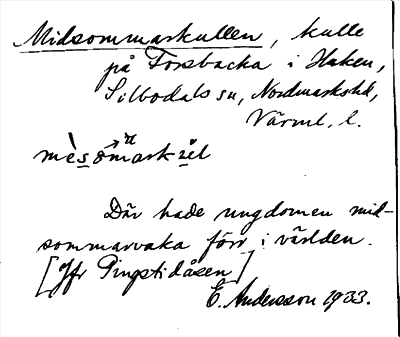 Midsommarkullen, kulle
på Forsbacka i Haken,
Silbodals sn, Nordmarks hd,
Värml. l.
Där hade ungdomen mid-
sommarvaka förr i världen.
[Jfr Pingstidåsen]
E. Andersson 1933.